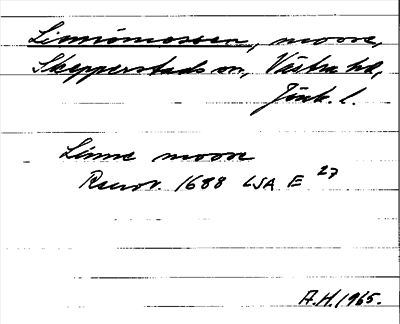 Linnimossen, mosse,
Skepperstads sn, Västra hd,
Jönk. l.
Linne mosse
Rserov. 1688 LSA E 27
A.H. 1965.